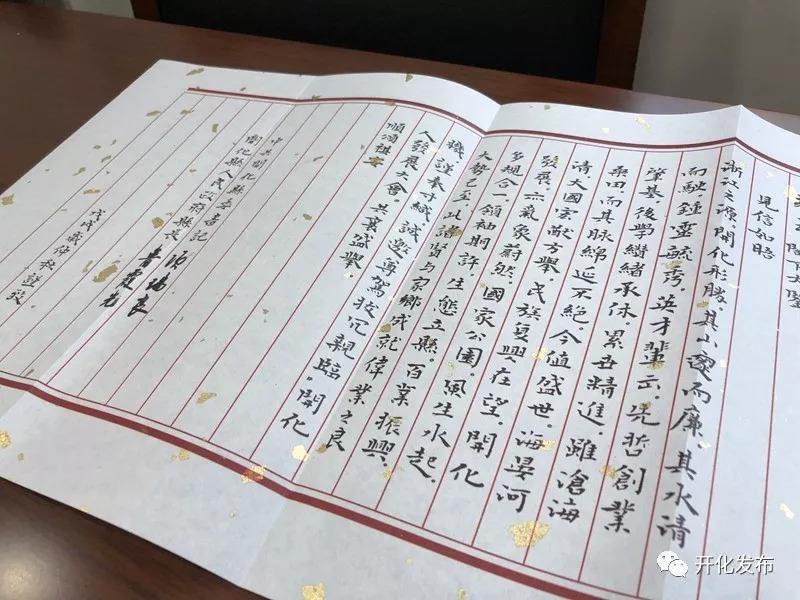 見信如晤
浙江之源，開化形勝。其山邃而廉，其水清
而駛，鍾靈毓秀，英才輩出。先哲創業
肇基，後學纘緒承休，累世精進，雖滄海
桑田而其脉綿延不絕。今值盛世，海晏河
清，大國宏猷方舉，民族復興在望。開化
發展，亦氣象蔚然，國家公園風生水起，
多規合一領袖期許，生態立縣，百業振興，
大勢已至，此諸賢与家鄉成就偉業之良
機，謹奉寸緘，誠邀尊駕拔冗親臨“開化
人發展大會”，共襄盛舉。
順頌祺安
中共開化縣委書記
開化縣人民政府縣長
戊戌歲仲秋謹致
开化发布